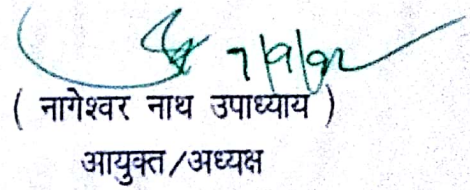 7/9/92
( नागेश्वर नाथ उपाध्याय )
आयुक्त/अध्यक्ष